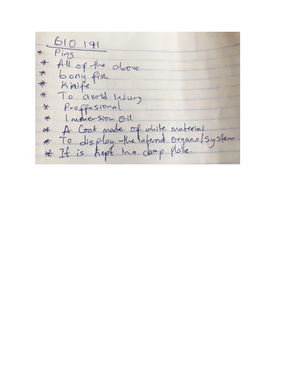 BIO 191
* Pins
* All of the above
* bony fish
* Knife
* To avoid Injury
* Proffesional
* Immersion Oil
* A Coat made of white material
* To display the Internal Organs/System
* It is kept in a damp place.